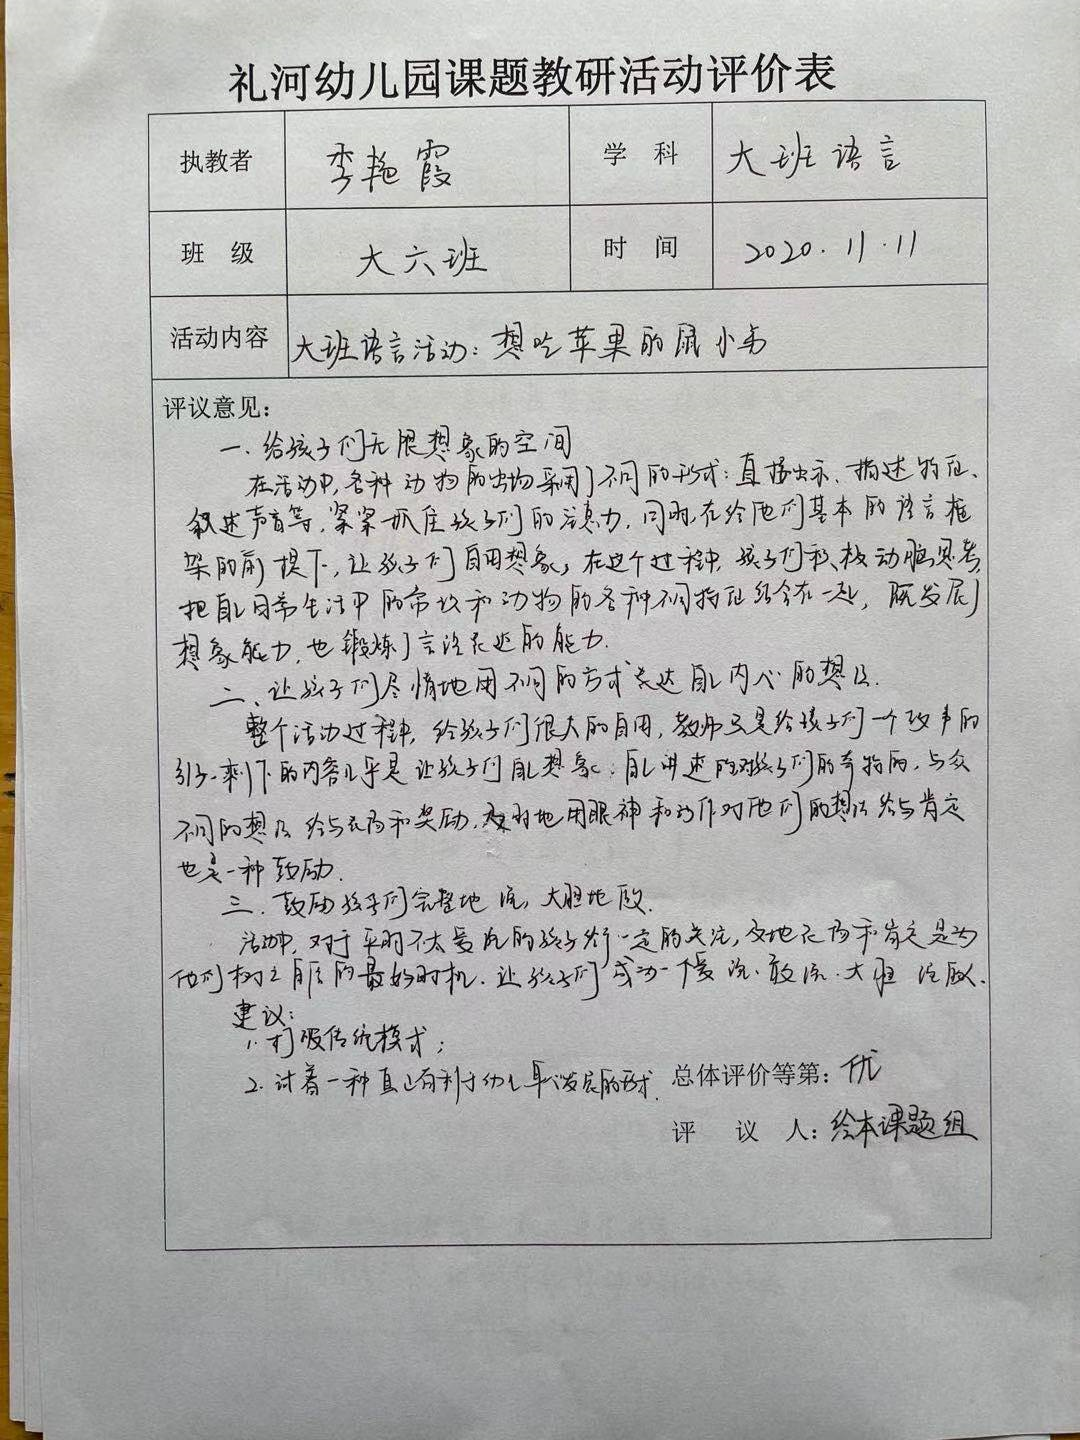 礼河幼儿园课题教研活动评价表
执教者 李艳霞 学 科 大班语言
班 级 大六班 时 间 2020.11.11
活动内容 大班语言活动：想吃苹果的鼠小弟
评议意见：
一、给孩子们无限想象的空间
在活动中，各种动物的出场采用了不同的形式：直接出示、描述特征、
叙述声音等，紧紧抓住孩子们的注意力，同时，在给他们基本的语言框
架的前提下，让孩子们自由想象，在这个过程中，孩子们积极动脑思考，
把自己日常生活中的常识和动物的各种不同特征结合在一起，既发展了
想象能力，也锻炼了言语表达的能力.
二、让孩子们尽情地用不同的方式表达自己内心的想法.
整个活动过程中，给孩子们很大的自由，教师只是给孩子们一个故事的
引子，剩下的内容几乎是让孩子们自己想象、自己讲述的，对孩子们的奇特的，与众
不同的想法给与表扬和奖励，及时地用眼神和动作对他们的想法给与肯定
也是一种鼓励.
三、鼓励孩子们完整地说，大胆地做.
活动中，对于平时不太爱说的孩子给予一定的关注，及时地表扬和肯定是为
他们树立自信的最好时机.让孩子们成为一个爱说、敢说、大胆 的
建议：
1.打破传统模式；
2.讨着一种真正有利于幼儿 发展的形式. 总体评价等第：优
评 议 人：绘本课题组